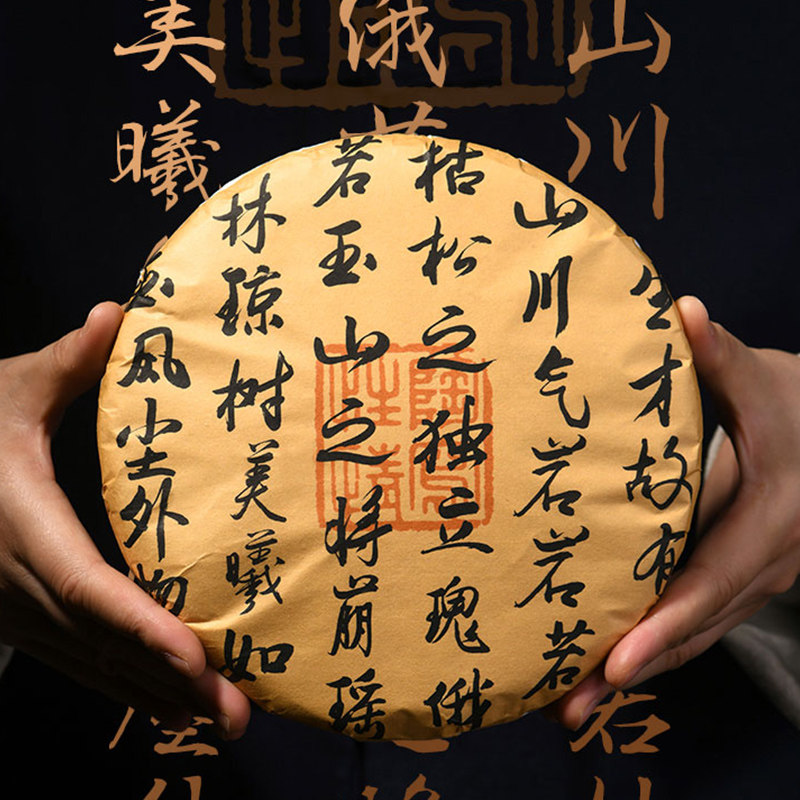 山川
俄若
美曦
生才故有
山川气岩岩若
枯松之独立瑰俄
若玉山之将崩瑶
林琼树美曦如
玉风尘外物